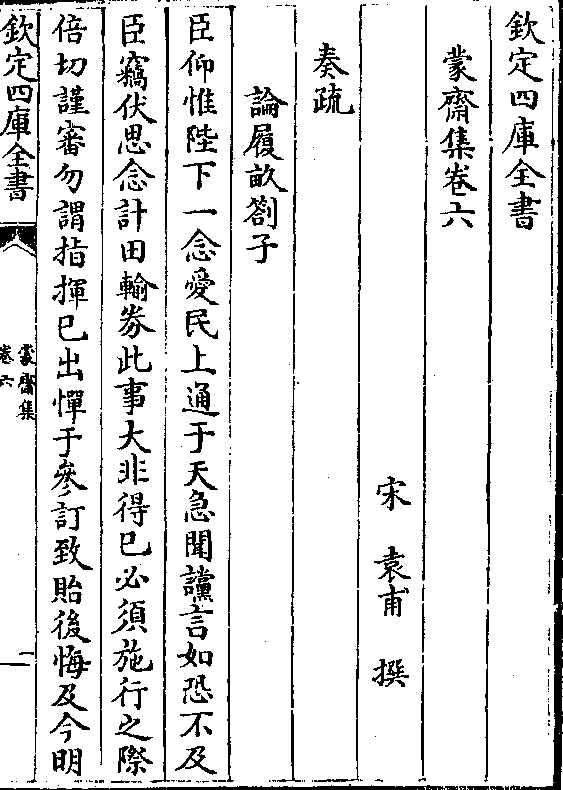 欽定四庫全書
蒙齋集卷六
宋 袁甫 撰
奏疏
論履畝劄子
臣仰惟陛下一念愛民上通于天急聞讜言如恐不及
臣竊伏思念計田輸券此事大非得已必須施行之際
倍切謹審勿謂指揮已出憚于參訂致貽後悔及今明
欽定四庫全書
蒙齋集
卷六
一